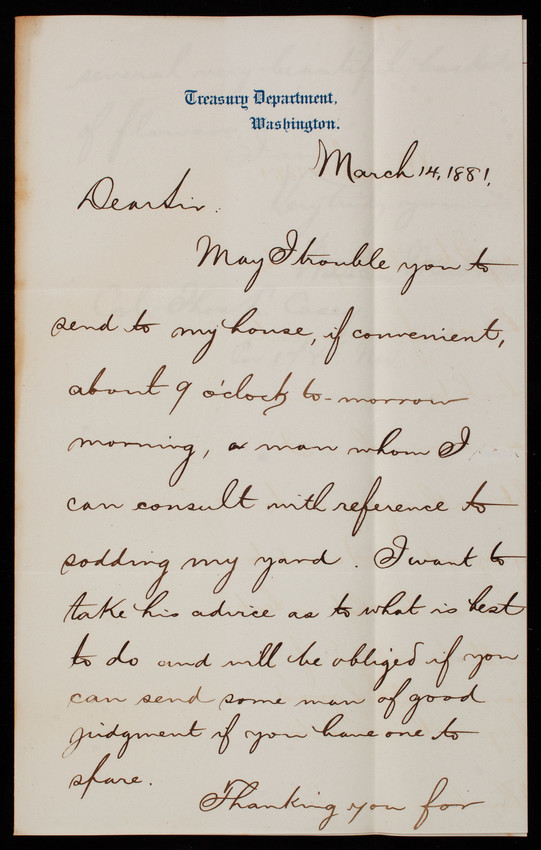 Treasury Department,
Washington.
March 14, 1881.
Dear Sir:
May I trouble you to
send to my house, if convenient,
about 9 o'clock to-morrow
morning, a man whom I
can consult with reference to
sodding my yard. I want to
take his advice as to what is best
to do and will be obliged if you
can send some man of good
judgment if you have one to
spare.
Thanking you for